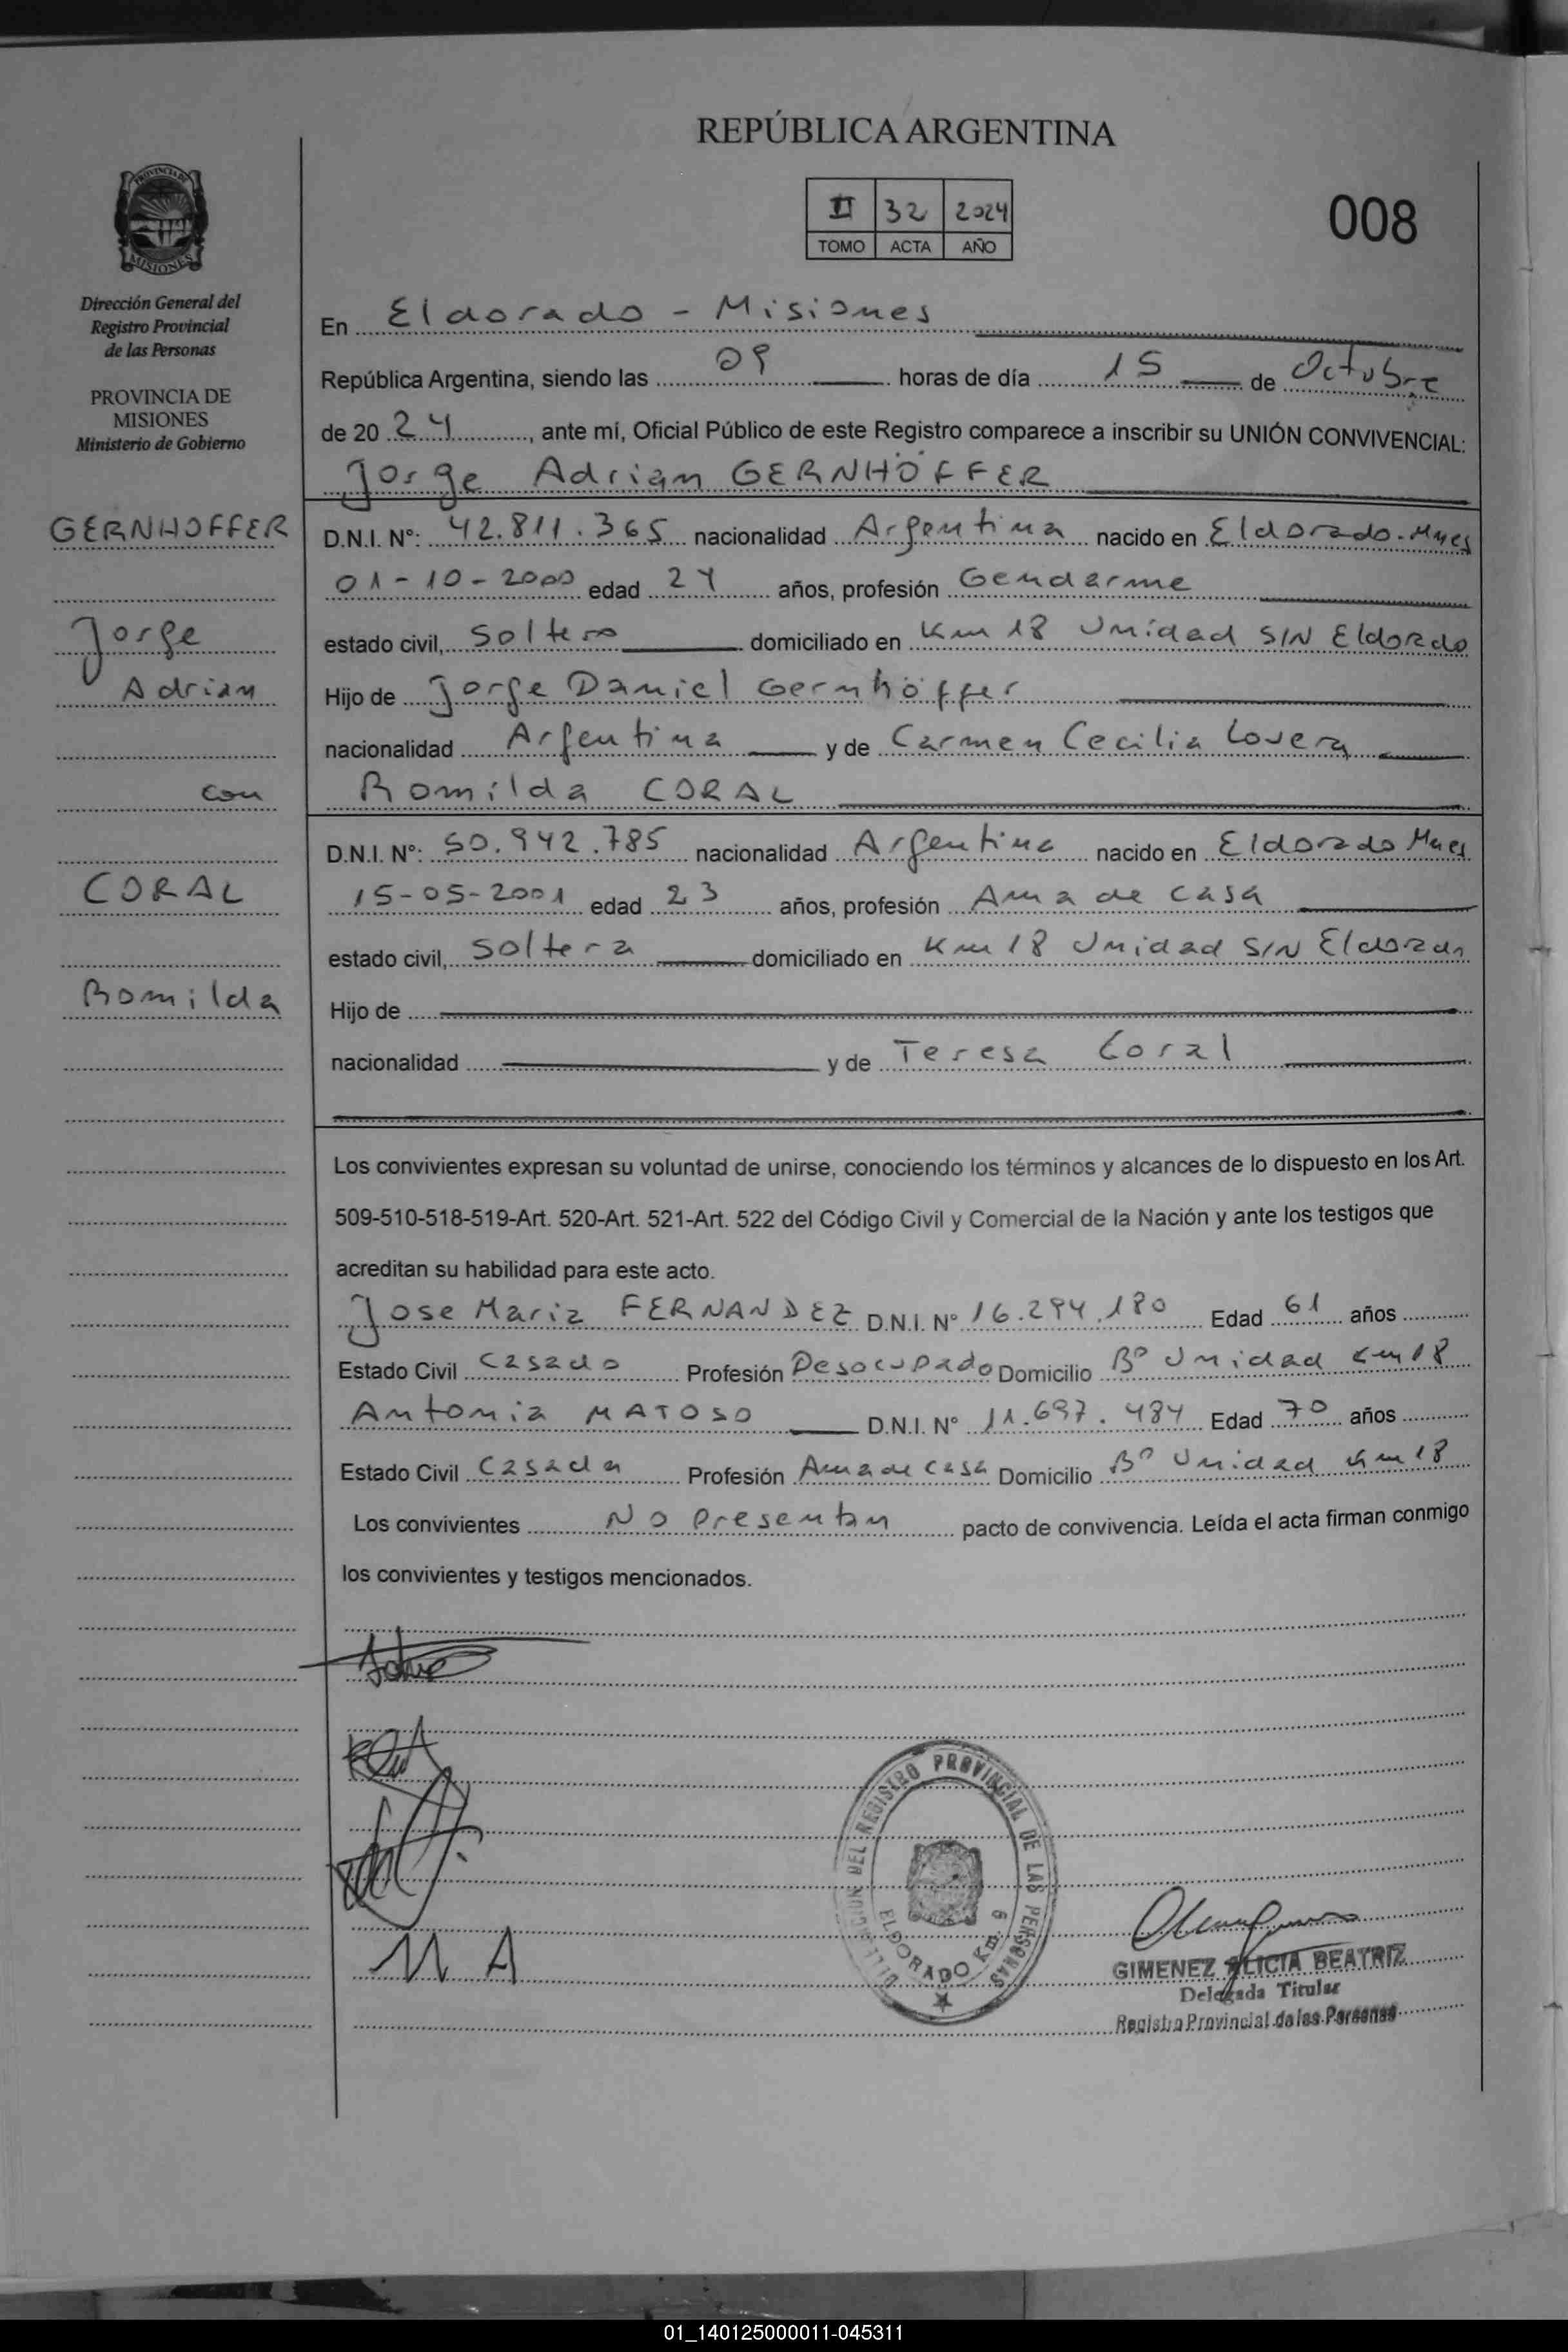 REPÚBLICA ARGENTINA
II 32 2024
TOMO ACTA AÑO
008
PROVINCIA DE
MISIONES
Dirección General del
Registro Provincial
de las Personas
PROVINCIA DE
MISIONES
Ministerio de Gobierno
GERNHOFFER
Jorge
Adrian
con
CORAL
Romilda
En Eldorado - Misiones
República Argentina, siendo las 09 horas de día 15 de Octubre
de 20 24, ante mí, Oficial Público de este Registro comparece a inscribir su UNIÓN CONVIVENCIAL:
Jorge Adrian GERNHÖFFER
D.N.I. N°: 42.811.365 nacionalidad Argentina nacido en Eldorado. Mnes
01-10-2000 edad 24 años, profesión Gendarme
estado civil, Soltero domiciliado en Km 18 Unidad S/N Eldorado
Hijo de Jorge Daniel Gernhöffer
nacionalidad Argentina y de Carmen Cecilia Lovera
Romilda CORAL
D.N.I. N°: 50.942.785 nacionalidad Argentina nacido en Eldorado Mnes
15-05-2001 edad 23 años, profesión Ama de casa
estado civil, Soltera domiciliado en Km 18 Unidad S/N Eldorado
Hijo de
nacionalidad y de Teresa Coral
Los convivientes expresan su voluntad de unirse, conociendo los términos y alcances de lo dispuesto en los Art.
509-510-518-519-Art. 520-Art. 521-Art. 522 del Código Civil y Comercial de la Nación y ante los testigos que
acreditan su habilidad para este acto.
Jose Maria FERNANDEZ D.N.I. N° 16.294.180 Edad 61 años
Estado Civil Casado Profesión Desocupado Domicilio B° Unidad Km 18
Antonia MATOSO D.N.I. N° 11.697.484 Edad 70 años
Estado Civil Casada Profesión Ama de casa Domicilio B° Unidad Km 18
Los convivientes No presentan pacto de convivencia. Leída el acta firman conmigo
los convivientes y testigos mencionados.
M A
DEL REGISTRO PROVINCIAL DE LAS PERSONAS
ELDORADO Km. 9
GIMENEZ ALICIA BEATRIZ
Delegada Titular
Registro Provincial de las Personas
01_140125000011-045311